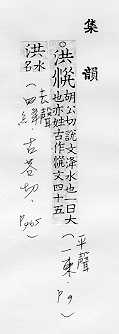 集韻
洪㳰胡公切說文洚水也一曰大
也亦姓古作㳰文四十五
平聲
(一東.P9
)
洪水名
去聲
(四絳.古巷切.
P465
)